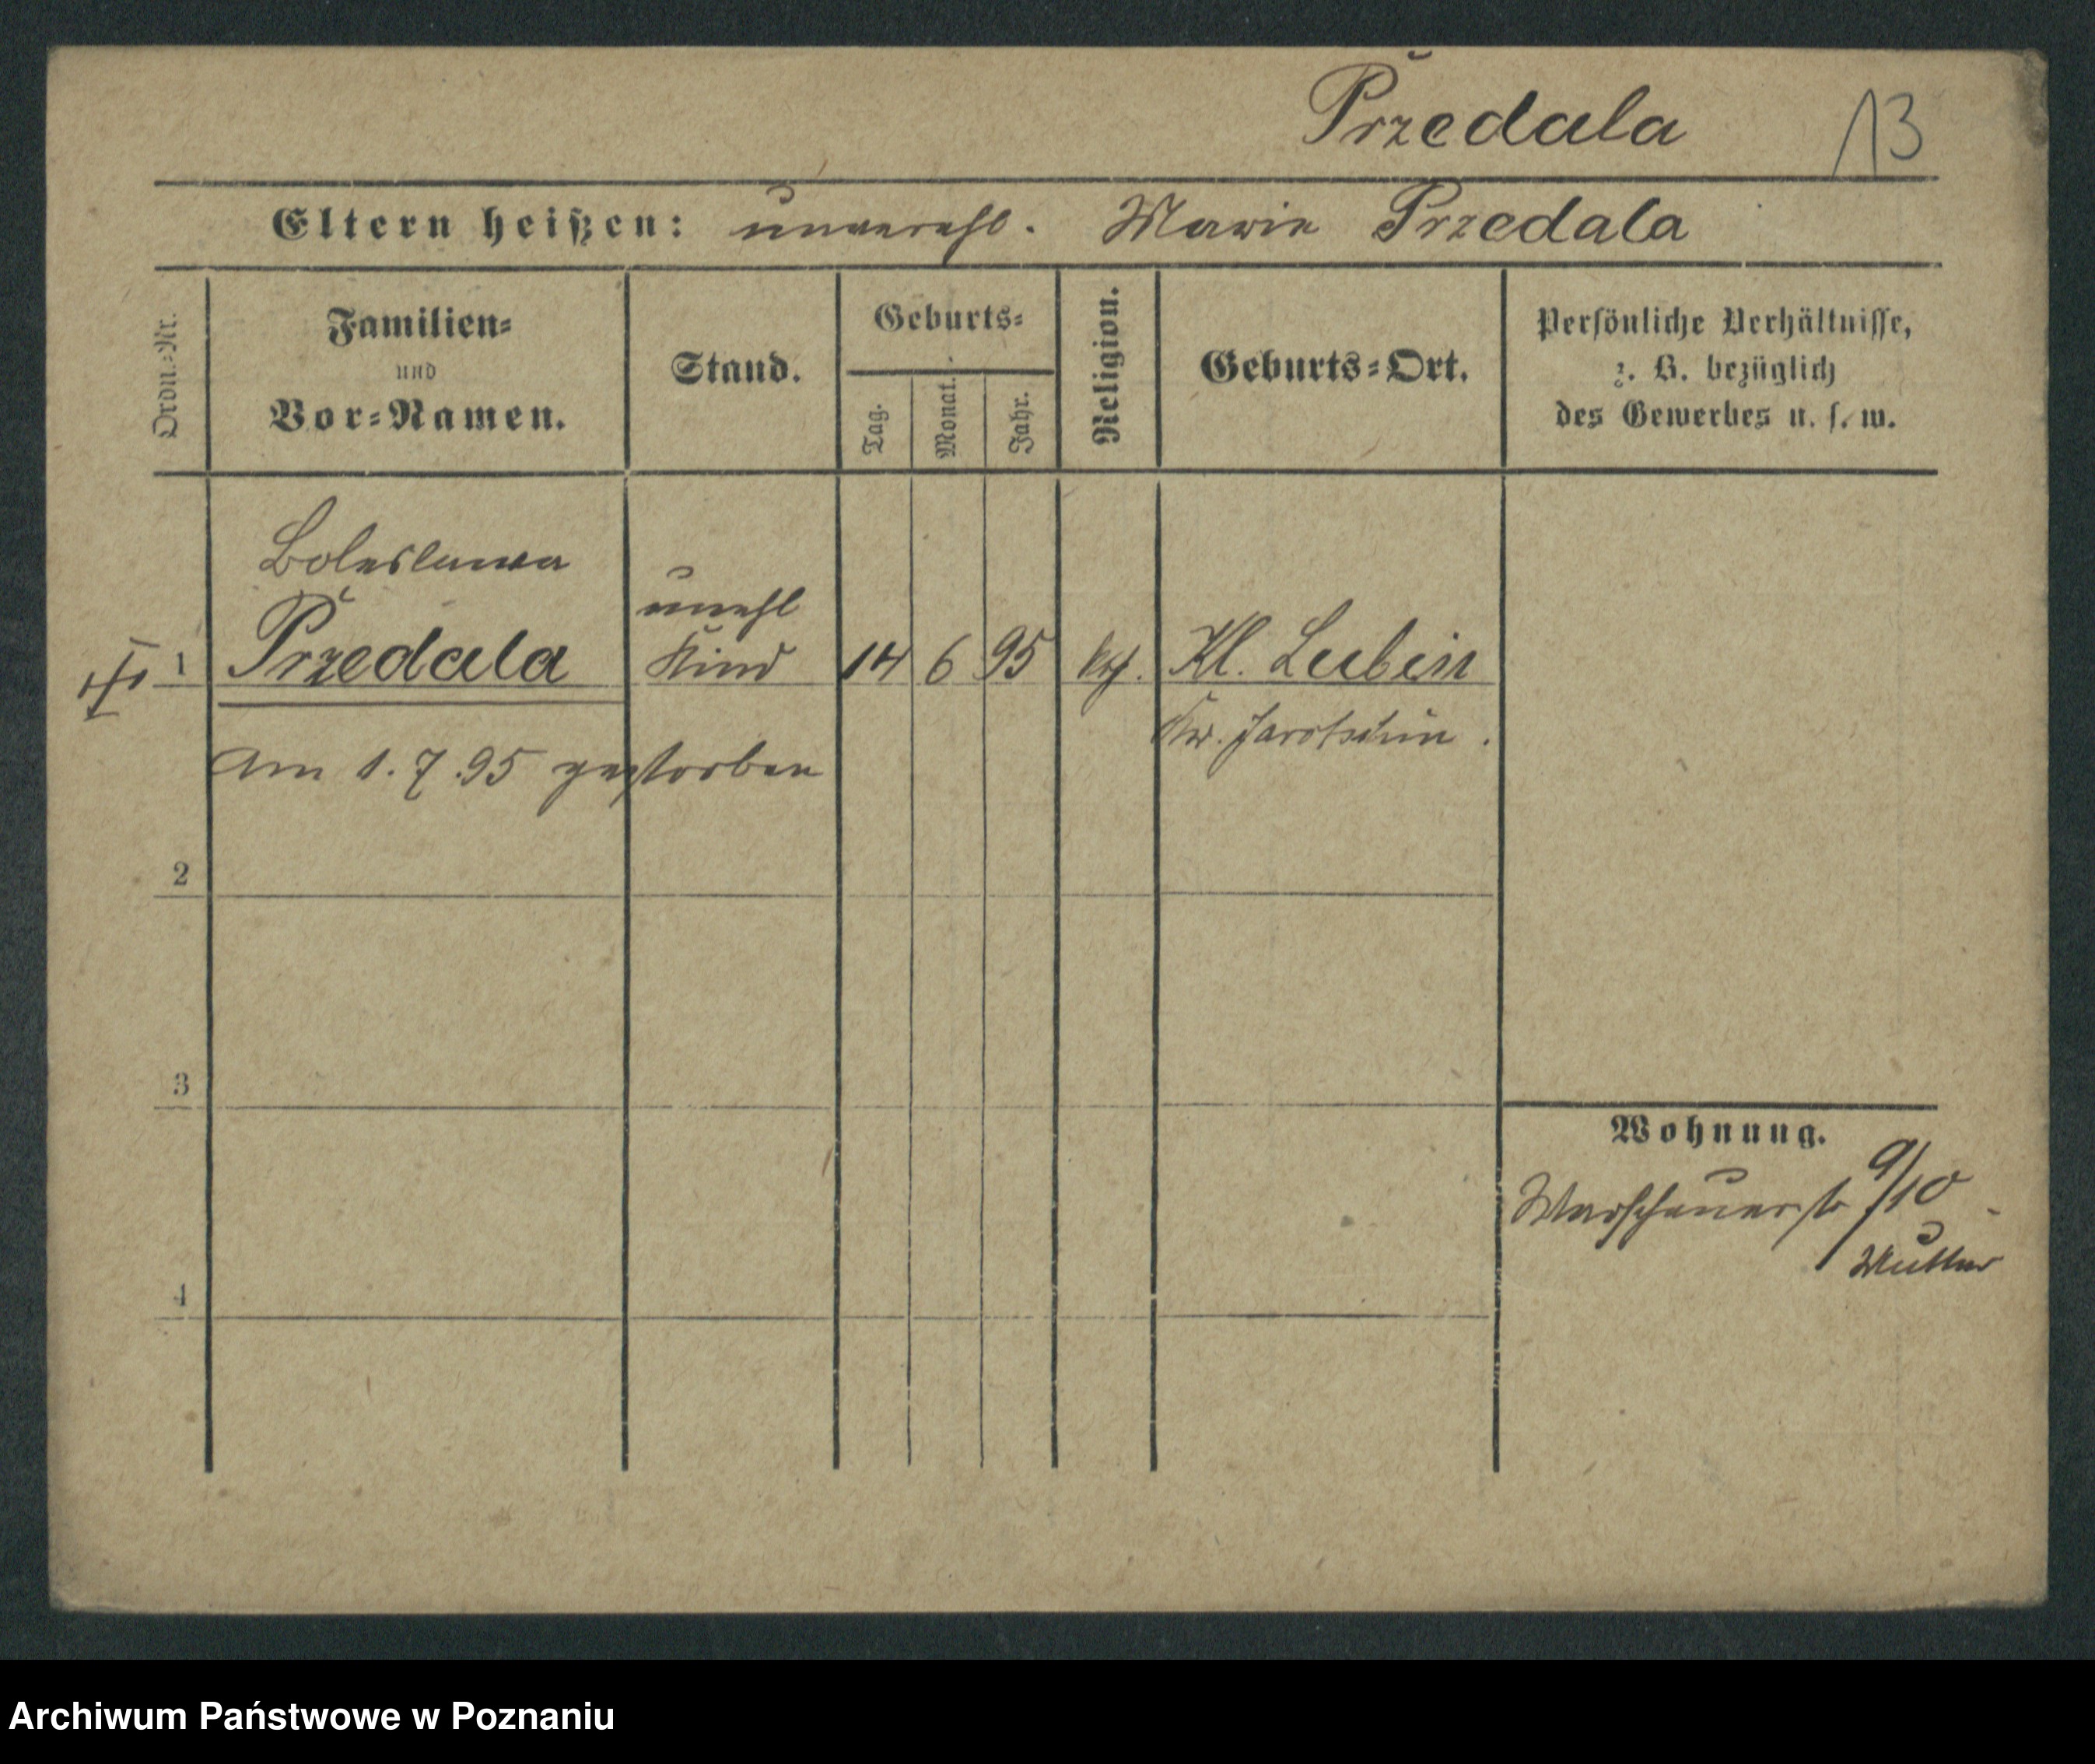 Przedala 13
Eltern heißen: unverehl. Marie Przedala
Ordn.=Nr.
Familien=
und
Vor=Namen.
Stand.
Geburts=
Tag.
Monat.
Jahr.
Religion.
Geburts=Ort.
Persönliche Verhältnisse,
z. B. bezüglich
des Gewerbes u. s. w.
Boleslawa
unehl
1 Przedala Kind 14 6 95 kth. Kl. Lubin
Kr. Jarotschin.
Am 1.7.95 gestorben
2
3
Wohnung.
Warschauerstr 9/10
Mutter
4
Archiwum Państwowe w Poznaniu